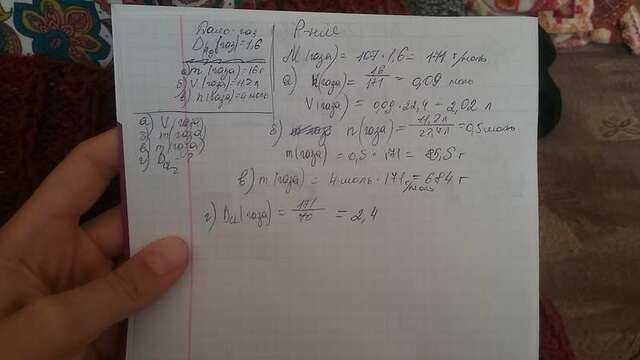 Дано: газ
D (газ) = 1,6
а) m (газа) = 16 г
б) V (газа) = 11,2 л
в) n (газа) = 4 моль
а) V (газа)
б) m (газа)
в) m (газа)
г) D - ?
Р-ние
M (газа) = 107 · 1,6 = 171 г/моль
а) n (газа) = 16/171 = 0,09 моль
V (газа) = 0,09 · 22,4 = 2,02 л
б) n (газа) = 11,2 л/22,4 л = 0,5 моль
m (газа) = 0,5 · 171 = 85,5 г
в) m (газа) = 4 моль · 171 г/моль = 684 г
г) D (газа) = 171/70 = 2,4